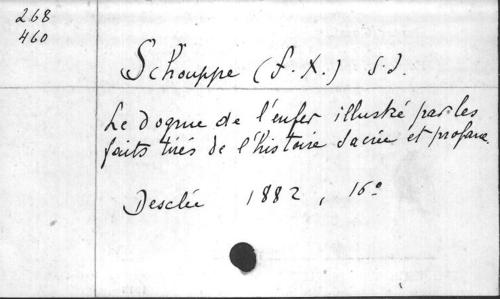 268
460
Schouppe (F. X.) S. J.
Le Dogme de l'enfer illustré par les
faits tirés de l'histoire Sacrée et profane.
Desclée 1882, 16º